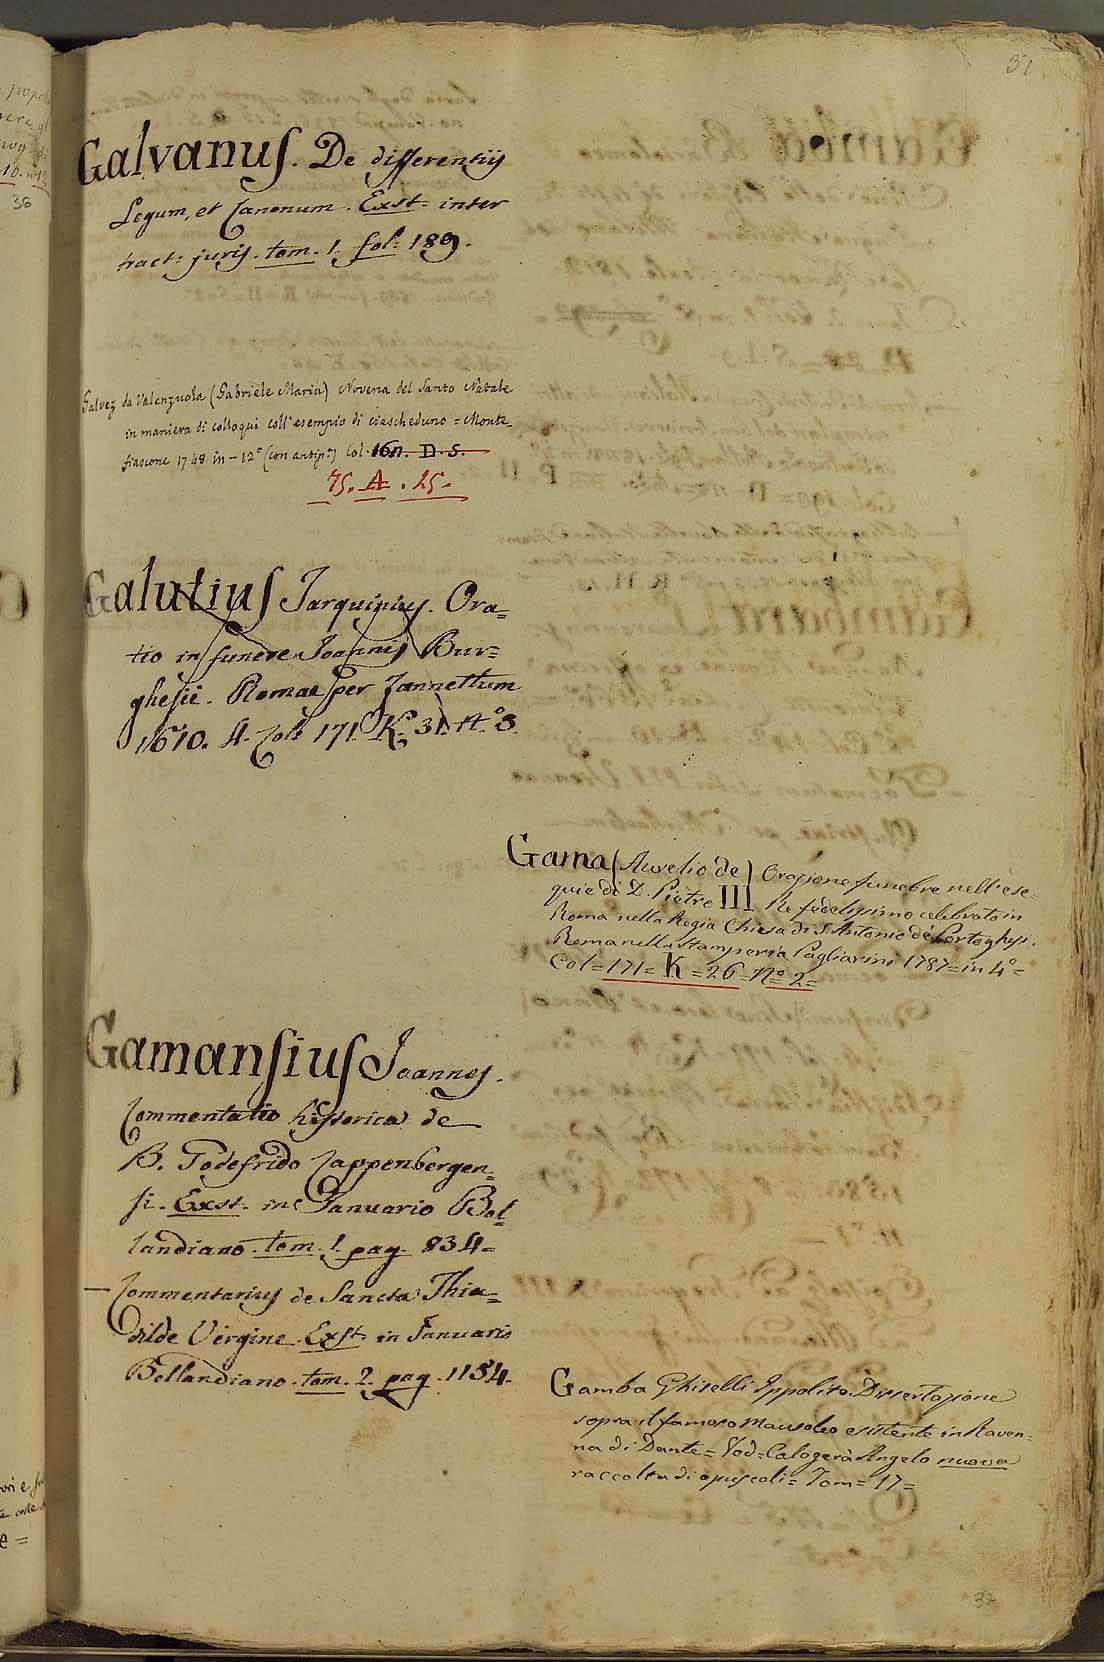 37
Galvanus. De differentijs
Legum, et Canonum. Exst= inter
tract: juris. tom. 1. fol: 189.
Galvez da Valenzuola (Gabriele Maria) Novena del Santo Natale
in maniera di colloqui coll'esempio di ciascheduno = Monte
fiascone 1748 in-12° (con antip.ª) Col. 160. D. S.
75. A. 25.
Galutius Tarquinius. Ora=
tio in funere Joannis Bur=
ghesii. Romae per Zannettum
1610. 4. Col: 171. K. 31. N.° 3.
Gama (Aurelio de) Orazione funebre nell'ese=
quie di D. Pietro III Re fedelissimo celebrato in
Roma nella Regia Chiesa di S. Antonio de' Portoghesi.
Roma nella stamperia Pagliarini 1787= in 4°=
Col=171= K =26= N° 2=
Gamansius Joannes.
Commentatio historica de
B. Godefrido Cappenbergen=
si. Exst. in Januario Bol=
landiano. tom. 1. pag. 834=
— Commentarius de Sancta Thia=
dilde Virgine. Exst. in Januario
Bollandiano. tom. 2. pag. 1154.
Gamba Ghiselli Ippolito. Dissertazione
sopra il famoso Mausoleo esistente in Raven=
na di Dante= Vod= Calogerà Angelo nuova
raccolta di opuscoli= Tom= 17=
37
36